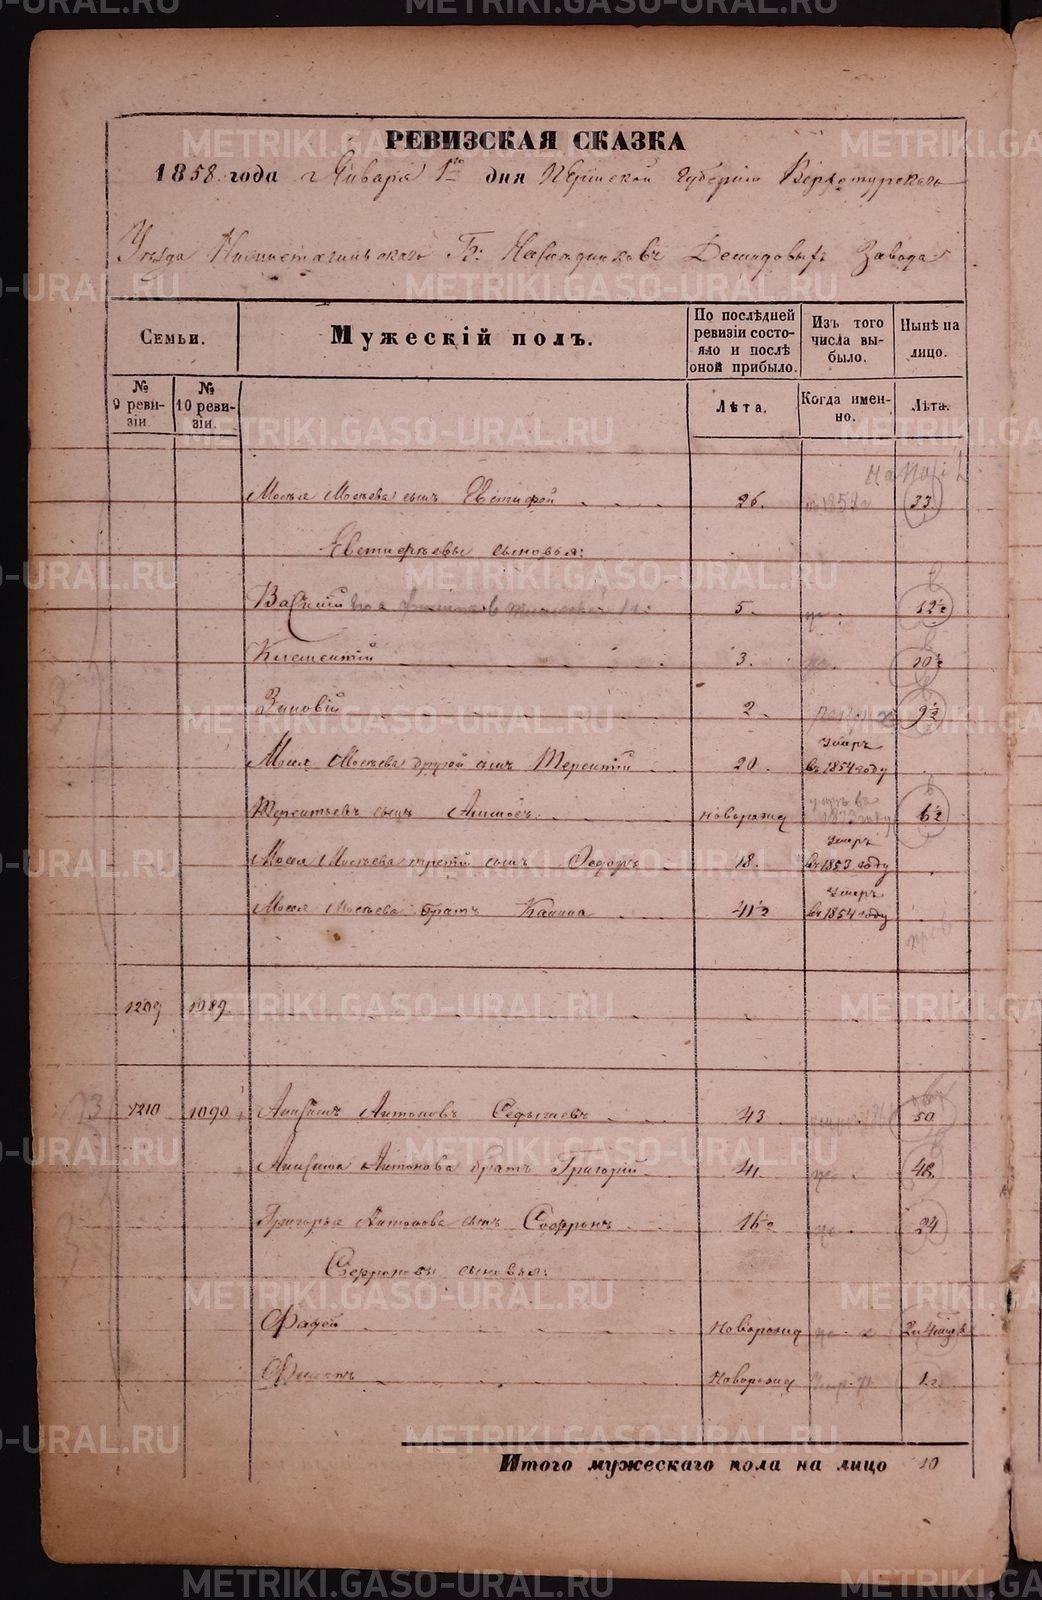 РЕВИЗСКАЯ СКАЗКА
1858 года Января 1го дня Пермской Губернии Верхотурскаго
Уезда Нижнетагильскаго Гг: Наследниковъ Демидовыхъ Завода
Семьи.
Мужескій полъ.
По послѣдней ревизіи состояло и послѣ оной прибыло.
Изъ того числа выбыло.
Нынѣ на лицо.
№ 9 ревизіи.
№ 10 ревизіи.
Лѣта.
Когда именно.
Лѣта.
Мосея Мосеева сынъ Евстифей 26. 33
Евстифеевы сыновья:
Василий 5. 12½
Климентий 3. 10½
Зиновій 2. 9½
Мосея Мосеева другой сынъ Терентий 20. Умеръ въ 1854 году
Терентьевъ сынъ новорожд 6½
Мосея Мосеева третій сынъ Федоръ 18. Умеръ въ 1853 году
Мосея Мосеева братъ Калина 41½ Умеръ въ 1854 году
1209 1089.
1210 1090 Анисимъ Антоновъ 43 50
Анисима Антонова братъ Григорій 41. 48.
Григорья Антонова сынъ Софронъ 16½ 24
Софроновы сыновья:
Фадей Новорожд
Новорожд 1 г.
Итого мужескаго пола на лицо 10
METRIKI.GASO-URAL.RU